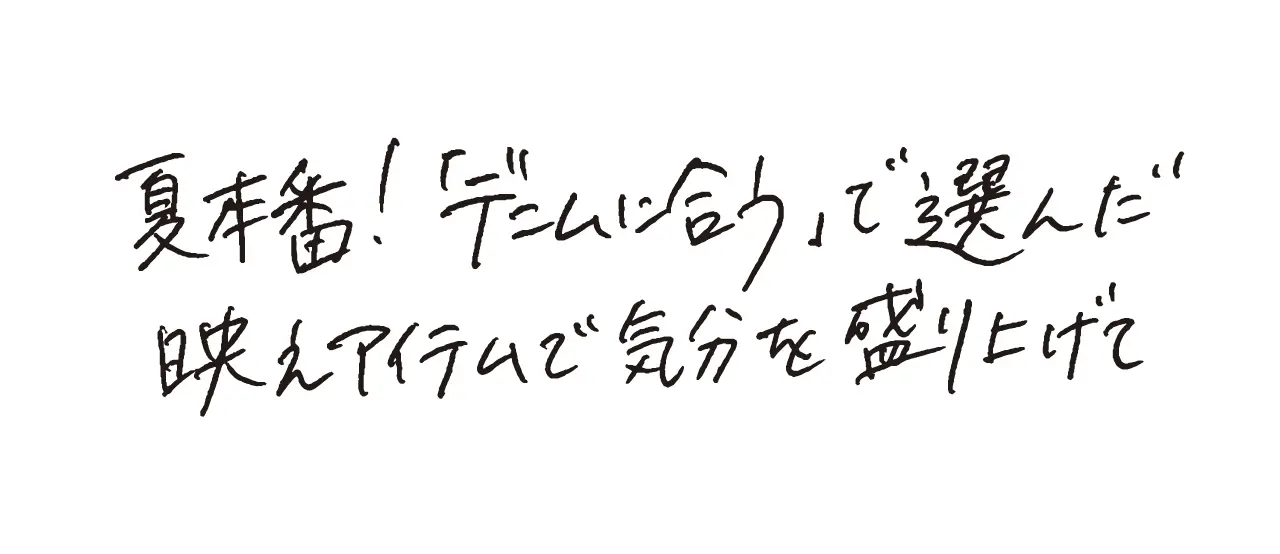 夏本番！「デニムに合う」で選んだ
映えアイテムで気分を盛り上げて